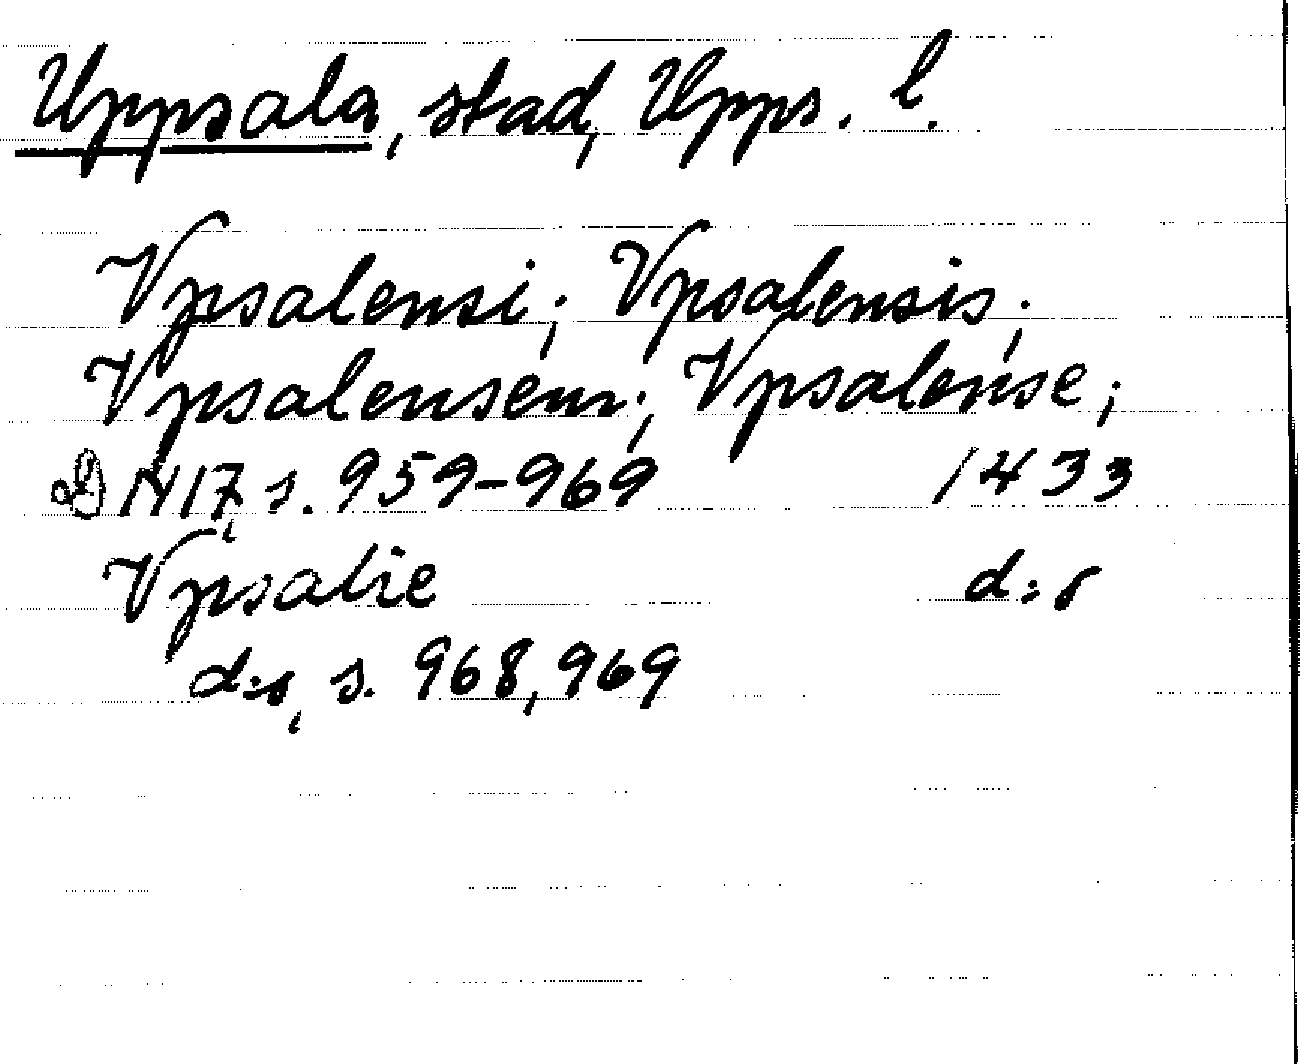 Uppsala, stad, Upps. l.
Vpsalensi; Vpsalensis;
Vpsalensem; Vpsalense;
DN 17, s. 959-969 1433
Vpsalie d:o
d:o, s. 968, 969